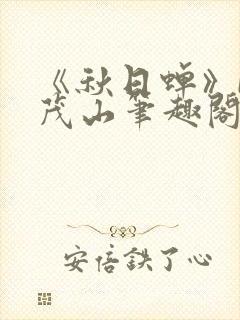 《秋日蝉》
茂山笔趣阁
安倍鉄了心